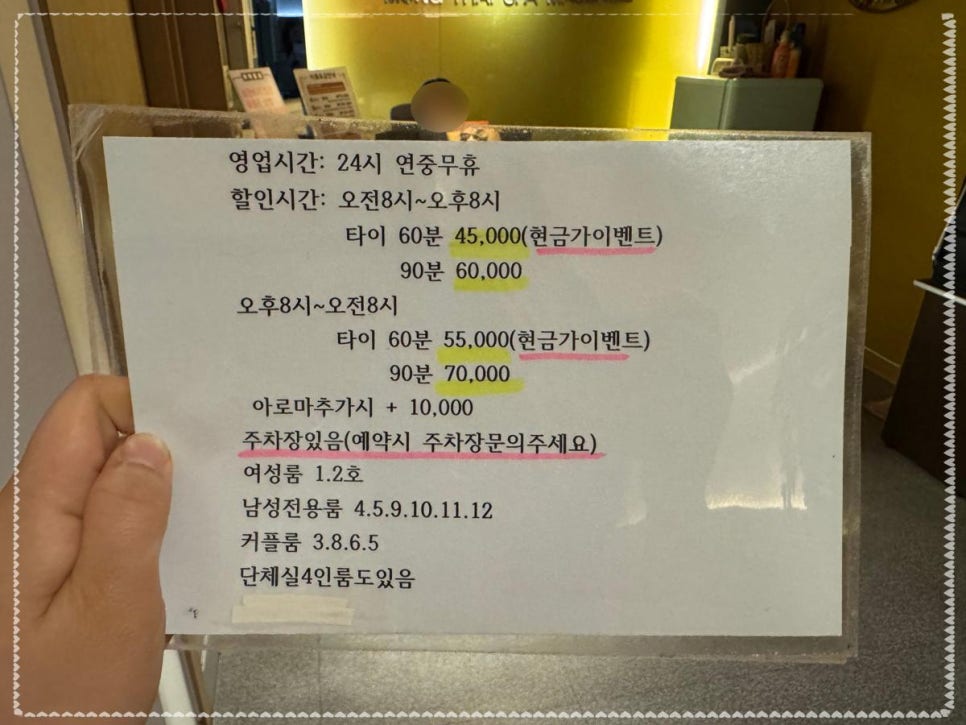 영업시간: 24시 연중무휴
할인시간: 오전8시~오후8시
타이 60분 45,000(현금가이벤트)
90분 60,000
오후8시~오전8시
타이 60분 55,000(현금가이벤트)
90분 70,000
아로마추가시 + 10,000
주차장있음(예약시 주차장문의주세요)
여성룸 1.2호
남성전용룸 4.5.9.10.11.12
커플룸 3.8.6.5
단체실4인룸도있음